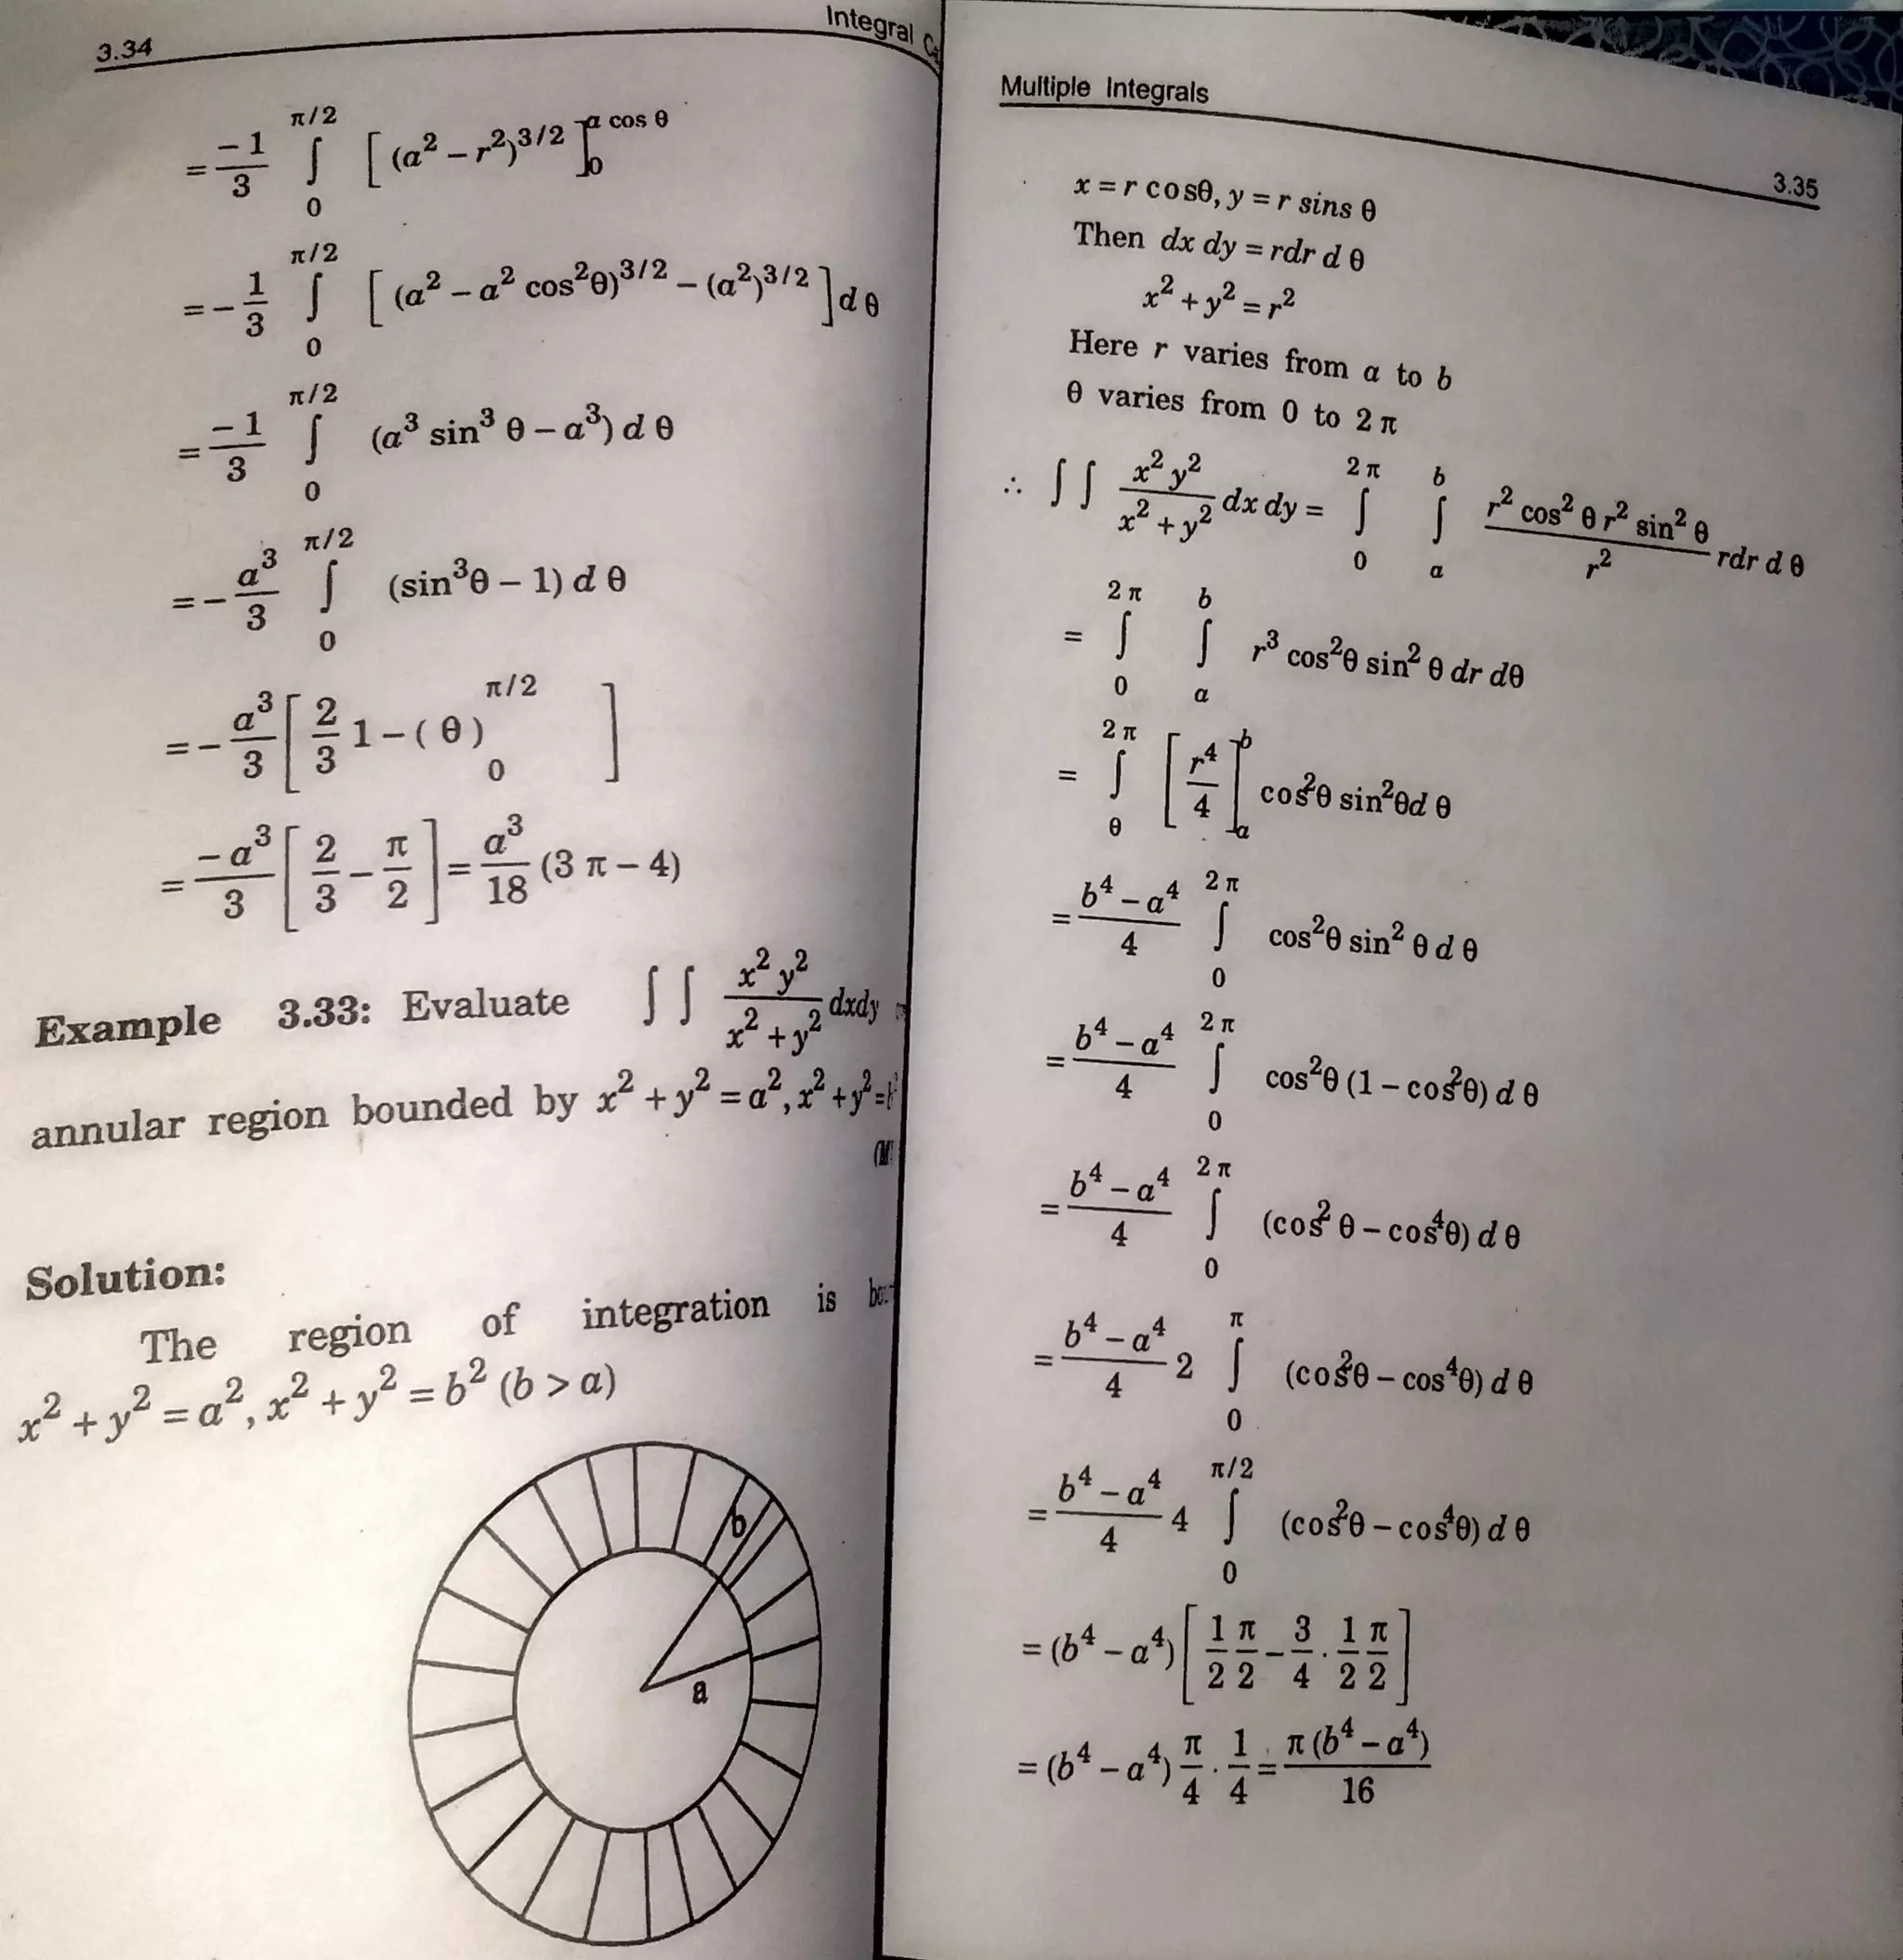 3.34
Integral
= -1/3 ∫_0^{π/2} [(a² – r²)^{3/2}]_0^{a cos θ}
= – 1/3 ∫_0^{π/2} [(a² – a² cos²θ)^{3/2} – (a²)^{3/2}] d θ
= -1/3 ∫_0^{π/2} (a³ sin³ θ – a³) d θ
= – a³/3 ∫_0^{π/2} (sin³θ – 1) d θ
= – a³/3 [2/3 1 – (θ)_0^{π/2}]
= -a³/3 [2/3 – π/2] = a³/18 (3 π – 4)
Example 3.33: Evaluate ∫ ∫ x² y²/(x² + y²) dxdy
annular region bounded by x² + y² = a², x² + y² =
Solution:
The region of integration is
x² + y² = a², x² + y² = b² (b > a)
b
a
Multiple Integrals
3.35
x = r cosθ, y = r sins θ
Then dx dy = rdr d θ
x² + y² = r²
Here r varies from a to b
θ varies from 0 to 2 π
∴ ∫ ∫ x² y²/(x² + y²) dx dy = ∫_0^{2π} ∫_a^b (r² cos² θ r² sin² θ)/r² rdr d θ
= ∫_0^{2π} ∫_a^b r³ cos²θ sin² θ dr dθ
= ∫_θ^{2π} [r⁴/4]_a^b cos²θ sin²θd θ
= (b⁴ – a⁴)/4 ∫_0^{2π} cos²θ sin² θ d θ
= (b⁴ – a⁴)/4 ∫_0^{2π} cos²θ (1 – cos²θ) d θ
= (b⁴ – a⁴)/4 ∫_0^{2π} (cos² θ – cos⁴θ) d θ
= (b⁴ – a⁴)/4 2 ∫_0^π (cos²θ – cos⁴θ) d θ
= (b⁴ – a⁴)/4 4 ∫_0^{π/2} (cos²θ – cos⁴θ) d θ
= (b⁴ – a⁴) [1/2 π/2 – 3/4 · 1/2 π/2]
= (b⁴ – a⁴) π/4 · 1/4 = π (b⁴ – a⁴)/16